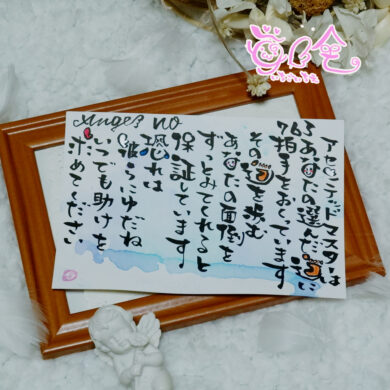 Angels no
763
アセンデッドマスターは
あなたの選んだ道に
拍手をおくっています
その道を歩む
あなたの面倒を
ずっとみてくれると
保証しています
恐れは
彼らにゆだね
いつでも助けを
求めてください